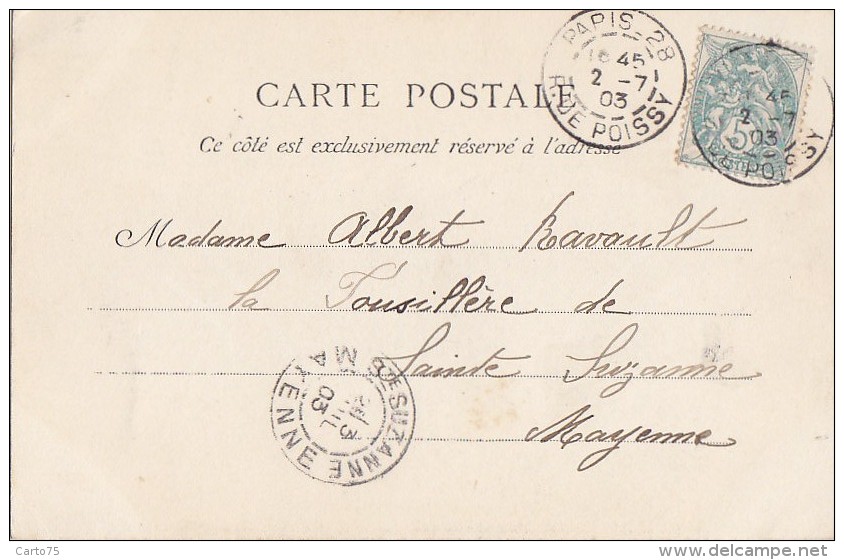 PARIS - 28
16 45
2 - 7
03
R. DE POISSY
45
2 - 7
03
POISSY
CARTE POSTALE
Ce côté est exclusivement réservé à l'adresse
Madame Albert Ravault
la Tousillère de
Sainte Suzanne
Mayenne
STE SUZANNE
3
JUIL
03
MAYENNE
Carto75
www.delcampe.net